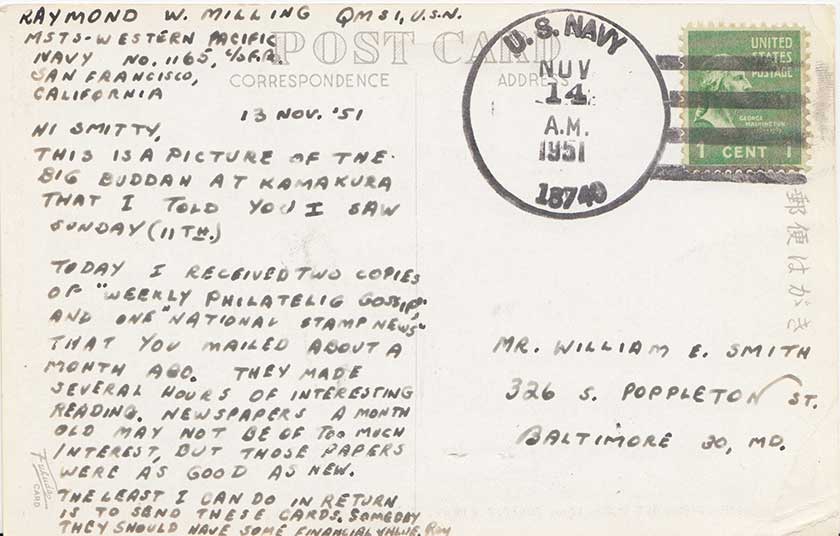 RAYMOND W. MILLING QMS1, U.S.N.
MSTS-WESTERN PACIFIC
NAVY NO. 1165, c/o F.P.O.
SAN FRANCISCO,
CALIFORNIA
POST CARD
CORRESPONDENCE
ADDRESS
13 NOV. '51
HI SMITTY,
THIS IS A PICTURE OF THE
BIG BUDDAH AT KAMAKURA
THAT I TOLD YOU I SAW
SUNDAY (11TH.)
TODAY I RECEIVED TWO COPIES
OF "WEEKLY PHILATELIG GOSSIP"
AND ONE "NATIONAL STAMP NEWS"
THAT YOU MAILED ABOUT A
MONTH AGO. THEY MADE
SEVERAL HOURS OF INTERESTING
READING. NEWSPAPERS A MONTH
OLD MAY NOT BE OF TOO MUCH
INTEREST, BUT THOSE PAPERS
WERE AS GOOD AS NEW.
THE LEAST I CAN DO IN RETURN
IS TO SEND THESE CARDS. SOMEDAY
THEY SHOULD HAVE SOME FINANCIAL VALUE. Ray
Fukuda
CARD
U.S. NAVY
NOV
14
A.M.
1951
18740
UNITED
STATES
POSTAGE
GEORGE
WASHINGTON
1 CENT 1
郵便はがき
MR. WILLIAM E. SMITH
326 S. POPPLETON ST.
BALTIMORE 30, MD.